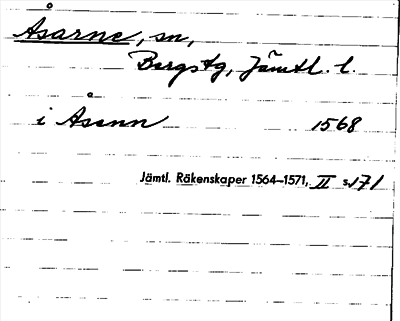 Åsarne, sn,
Bergs tg, Jämtl. l.
i Åsenn 1568
Jämtl. Räkenskaper 1564–1571, II s. 171